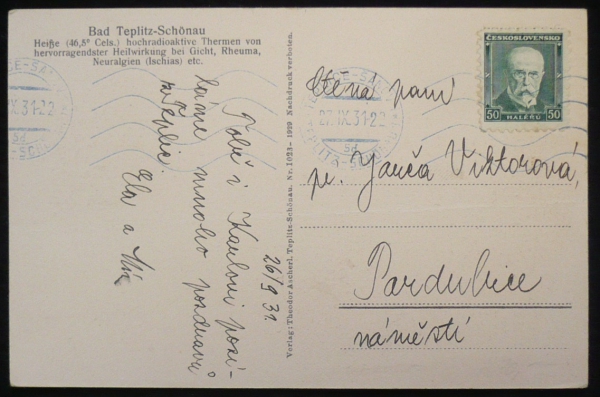 Bad Teplitz-Schönau
Heiße (46,5° Cels.) hochradioaktive Thermen von
hervorragendster Heilwirkung bei Gicht, Rheuma,
Neuralgien (Ischias) etc.
Tobě i Karlovi posí-
láme mnoho pozdravů
z Teplic.
Ela a
26/9 31
Verlag: Theodor Ascherl, Teplitz-Schönau. Nr. 1023 – 1929 Nachdruck verboten.
IX.31-22
27.IX.31-22
5d
ČESKOSLOVENSKO
50 HALÉŘŮ 50
Ctěná paní
Jarča Viktorová,
Pardubice
náměstí